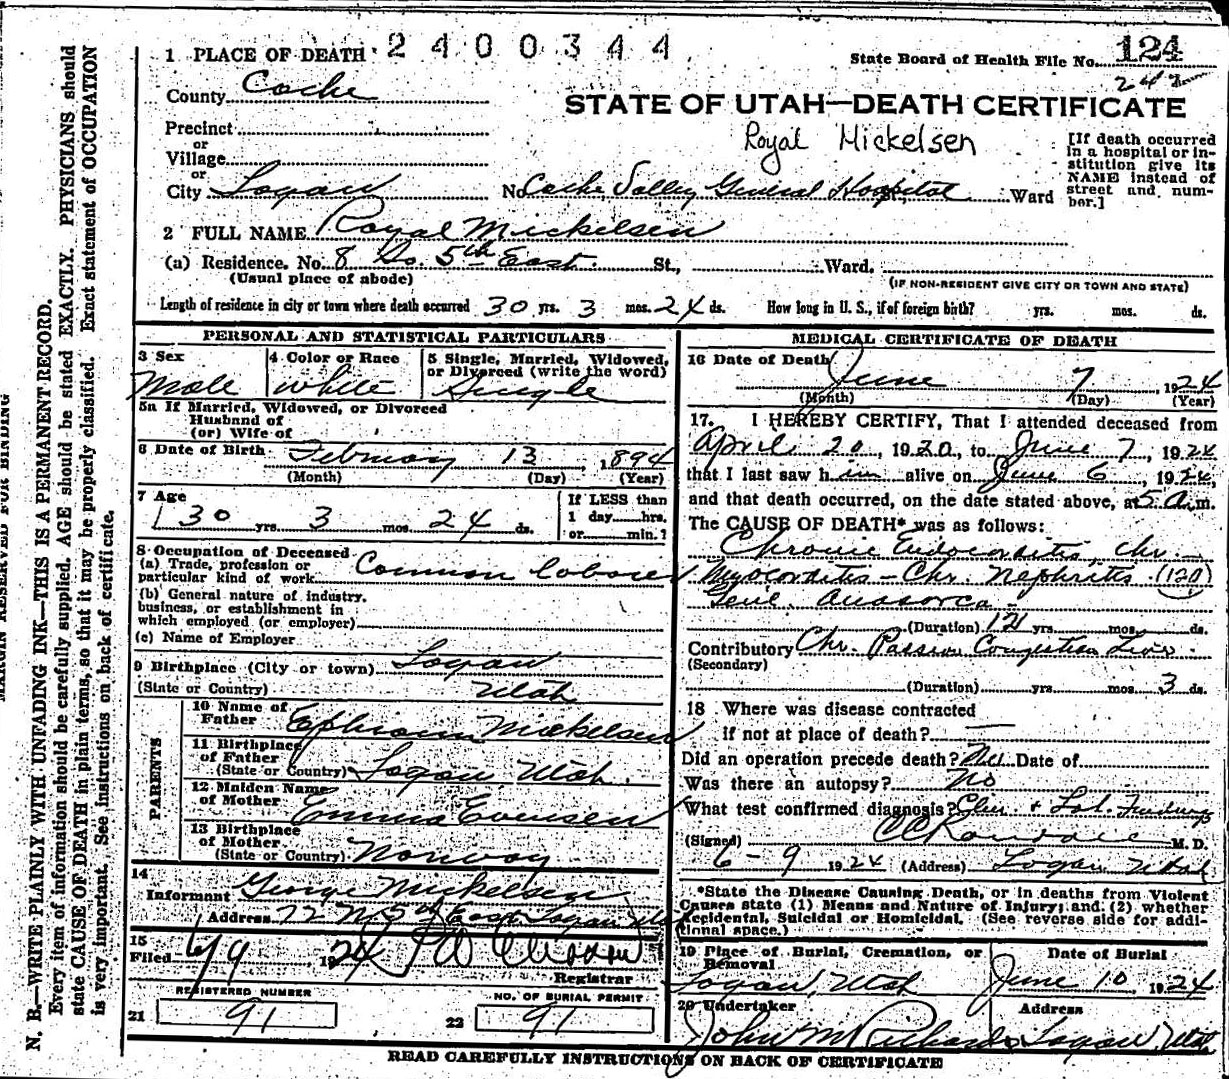 1 PLACE OF DEATH 2400344
State Board of Health File No. 124
County Cache
STATE OF UTAH—DEATH CERTIFICATE
Precinct
or
Village
or
City Logan
Royal Mickelsen
No. Cache Valley General Hospital Ward
[If death occurred in a hospital or institution give its NAME instead of street and number.]
2 FULL NAME Royal Mickelsen
(a) Residence. No. 8 So. 5th East. St., Ward.
(Usual place of abode) (IF NON-RESIDENT GIVE CITY OR TOWN AND STATE)
Length of residence in city or town where death occurred 30 yrs. 3 mos. 24 ds. How long in U. S., if of foreign birth? yrs. mos. ds.
PERSONAL AND STATISTICAL PARTICULARS
3 Sex Male
4 Color or Race white
5 Single, Married, Widowed, or Divorced (write the word) Single
5a If Married, Widowed, or Divorced
Husband of
(or) Wife of
6 Date of Birth February 13, 1894
(Month) (Day) (Year)
7 Age
30 yrs. 3 mos. 24 ds.
If LESS than
1 day hrs.
or min.?
8 Occupation of Deceased
(a) Trade, profession or particular kind of work Common laborer
(b) General nature of industry, business, or establishment in which employed (or employer)
(c) Name of Employer
9 Birthplace (City or town) Logan
(State or Country) Utah
PARENTS
10 Name of Father Ephraim Mickelsen
11 Birthplace of Father (State or Country) Logan Utah.
12 Maiden Name of Mother Emma Evensen
13 Birthplace of Mother (State or Country) Norway
14
Informant George Mickelsen
Address 72 N 5th East Logan Utah
15
Filed 6/9 1924
Registrar
REGISTERED NUMBER
21 91
NO. OF BURIAL PERMIT
22 91
MEDICAL CERTIFICATE OF DEATH
16 Date of Death June 7 1924
(Month) (Day) (Year)
17. I HEREBY CERTIFY, That I attended deceased from
April 20, 1920, to June 7, 1924
that I last saw him alive on June 6, 1924,
and that death occurred, on the date stated above, at 5 a.m.
The CAUSE OF DEATH* was as follows:
Chronic Endocarditis Chr.
Myocarditis - Chr. Nephritis (120)
Genl. Anasarca -
(Duration) 12 yrs. mos. ds.
Contributory Chr. Passive Congestion Liver.
(Secondary)
(Duration) yrs. mos. 3 ds.
18 Where was disease contracted
if not at place of death?
Did an operation precede death? No Date of
Was there an autopsy? No
What test confirmed diagnosis? Clin. + Lab. Findings
(Signed) M. D.
6-9 1924 (Address) Logan Utah
*State the Disease Causing Death, or in deaths from Violent Causes state (1) Means and Nature of Injury; and (2) whether Accidental, Suicidal or Homicidal. (See reverse side for additional space.)
19 Place of Burial, Cremation, or Removal
Logan, Utah
Date of Burial
June 10, 1924
20 Undertaker
John M Richards
Address
Logan, Utah
READ CAREFULLY INSTRUCTIONS ON BACK OF CERTIFICATE
MARGIN RESERVED FOR BINDING
N. B.—WRITE PLAINLY WITH UNFADING INK—THIS IS A PERMANENT RECORD.
Every item of information should be carefully supplied. AGE should be stated EXACTLY. PHYSICIANS should
state CAUSE OF DEATH in plain terms, so that it may be properly classified. Exact statement of OCCUPATION
is very important. See instructions on back of certificate.